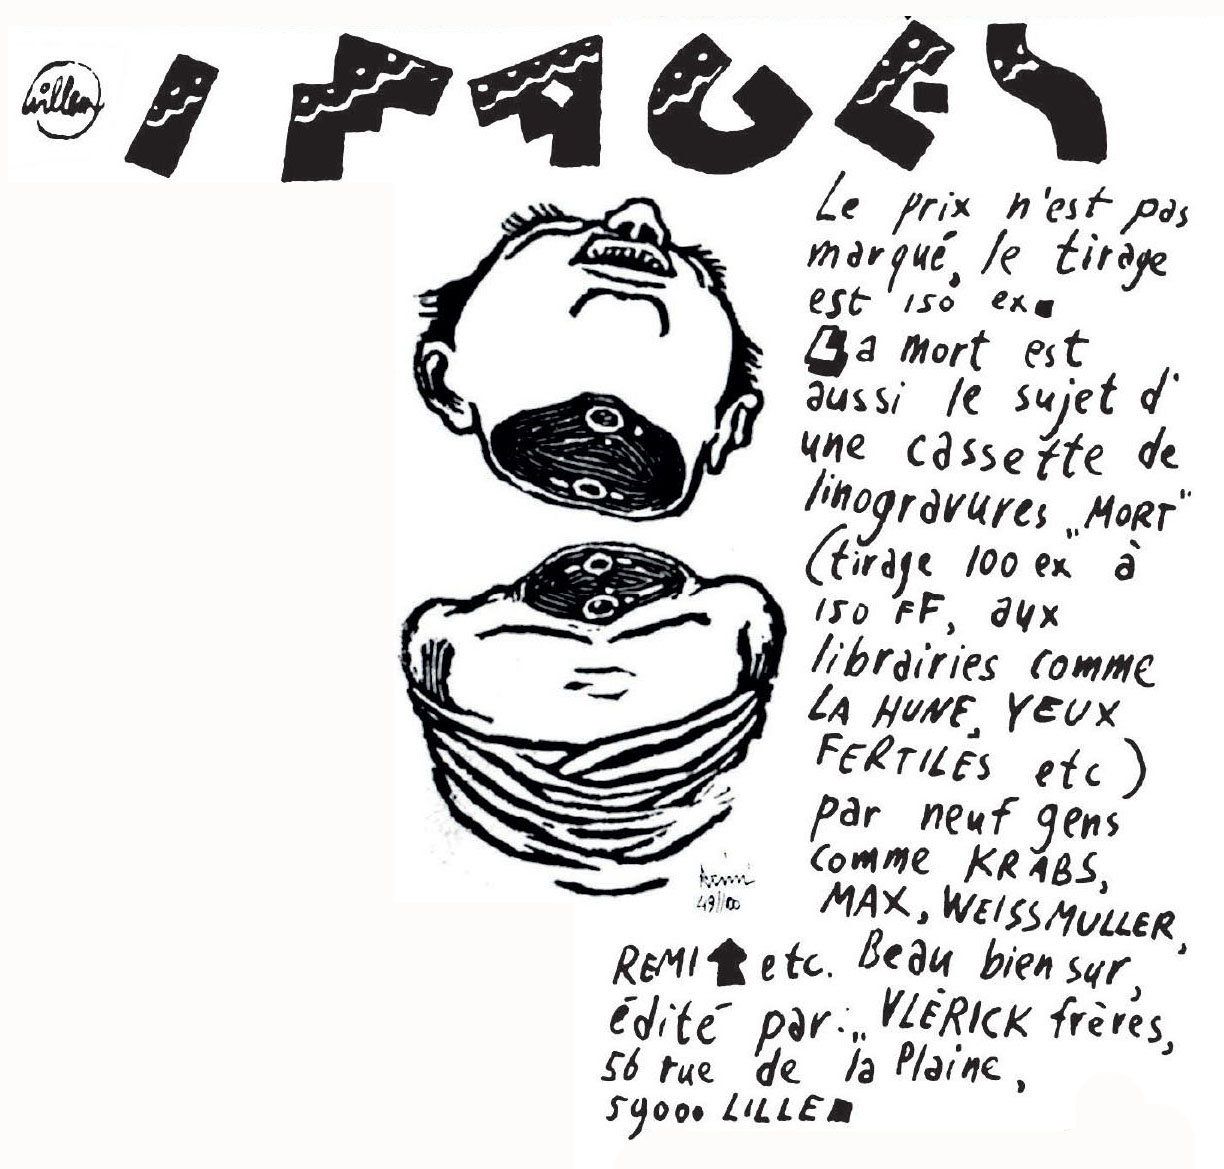 Willem IMAGES
Le prix n'est pas
marqué, le tirage
est 150 ex■
La mort est
aussi le sujet d'
une cassette de
linogravures „MORT"
(tirage 100 ex à
150 FF, aux
librairies comme
LA HUNE, YEUX
FERTILES etc)
par neuf gens
comme KRABS,
MAX, WEISSMULLER,
Remi
49/100
REMI ⬆ etc. Beau bien sur,
édité par: „VLERICK frères,
56 rue de la Plaine,
59000 LILLE■